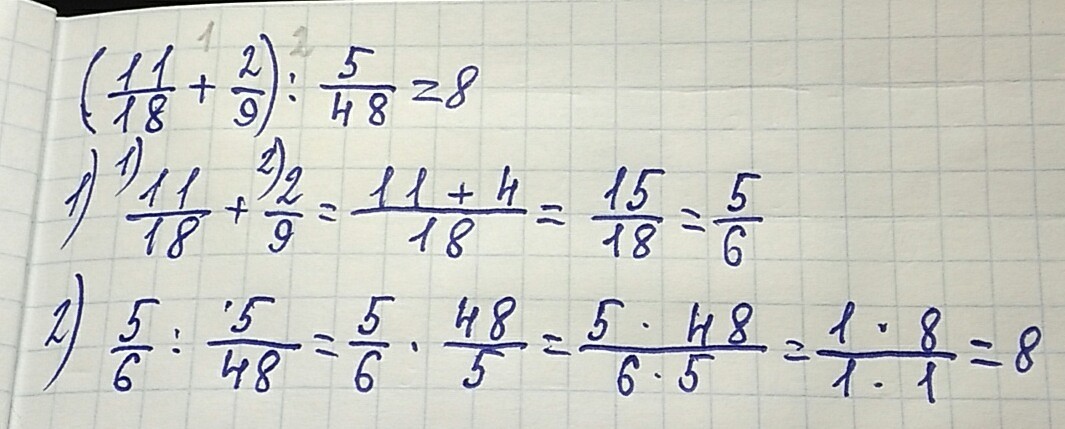 1 2
(11/18 + 2/9) : 5/48 = 8
1) 1) 11/18 + 2) 2/9 = (11 + 4)/18 = 15/18 = 5/6
2) 5/6 : 5/48 = 5/6 · 48/5 = (5 · 48)/(6 · 5) = (1 · 8)/(1 · 1) = 8